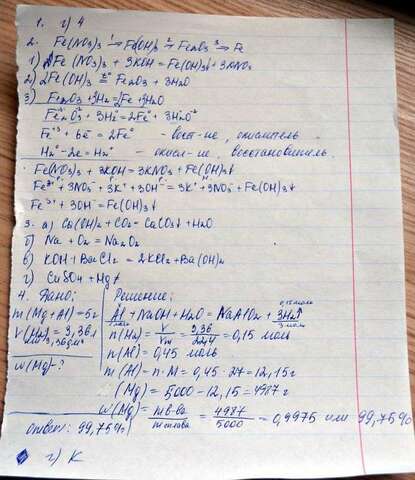 1. г) 4
2. Fe(NO3)3 →¹ Fe(OH)3 →² Fe2O3 →³ Fe
1) Fe(NO3)3 + 3KOH = Fe(OH)3↓ + 3KNO3
2) 2Fe(OH)3 = Fe2O3 + 3H2O
3) Fe2O3 + 3H2 = 2Fe + 3H2O
Fe2⁺³O3⁻² + 3H2⁰ = 2Fe⁰ + 3H2⁺O⁻²
Fe⁺³ + 6ē = 2Fe⁰ - вост-ие, окислитель
H2⁰ - 2ē = H2⁺ - окисл-ие, восстановитель
Fe(NO3)3 + 3KOH = 3KNO3 + Fe(OH)3↓
Fe³⁺ + 3NO3⁻ + 3K⁺ + 3OH⁻ = 3K⁺ + 3NO3⁻ + Fe(OH)3↓
Fe³⁺ + 3OH⁻ = Fe(OH)3↓
3. а) Ca(OH)2 + CO2 = CaCO3↓ + H2O
б) Na + O2 = Na2O2
в) KOH + BaCl2 = 2KCl2 + Ba(OH)2
г) CuSO4 + Mg ≠
4. Дано: Решение:
m(Mg+Al) = 5г Al + NaOH + H2O = NaAlO2 + 3H2↑ 0,15 моль 3 моль
V(H2) = 3,36л n(H2) = V/Vm = 3,36/22,4 = 0,15 моль
n(Al) = 0,45 моль
w(Mg) - ? m(Al) = n · M = 0,45 · 27 = 12,15г
(Mg) = 5000 - 12,15 = 4987г
w(Mg) = mв-ва/mсплава = 4987/5000 = 0,9975 или 99,75%
Ответ: 99,75%
г) K